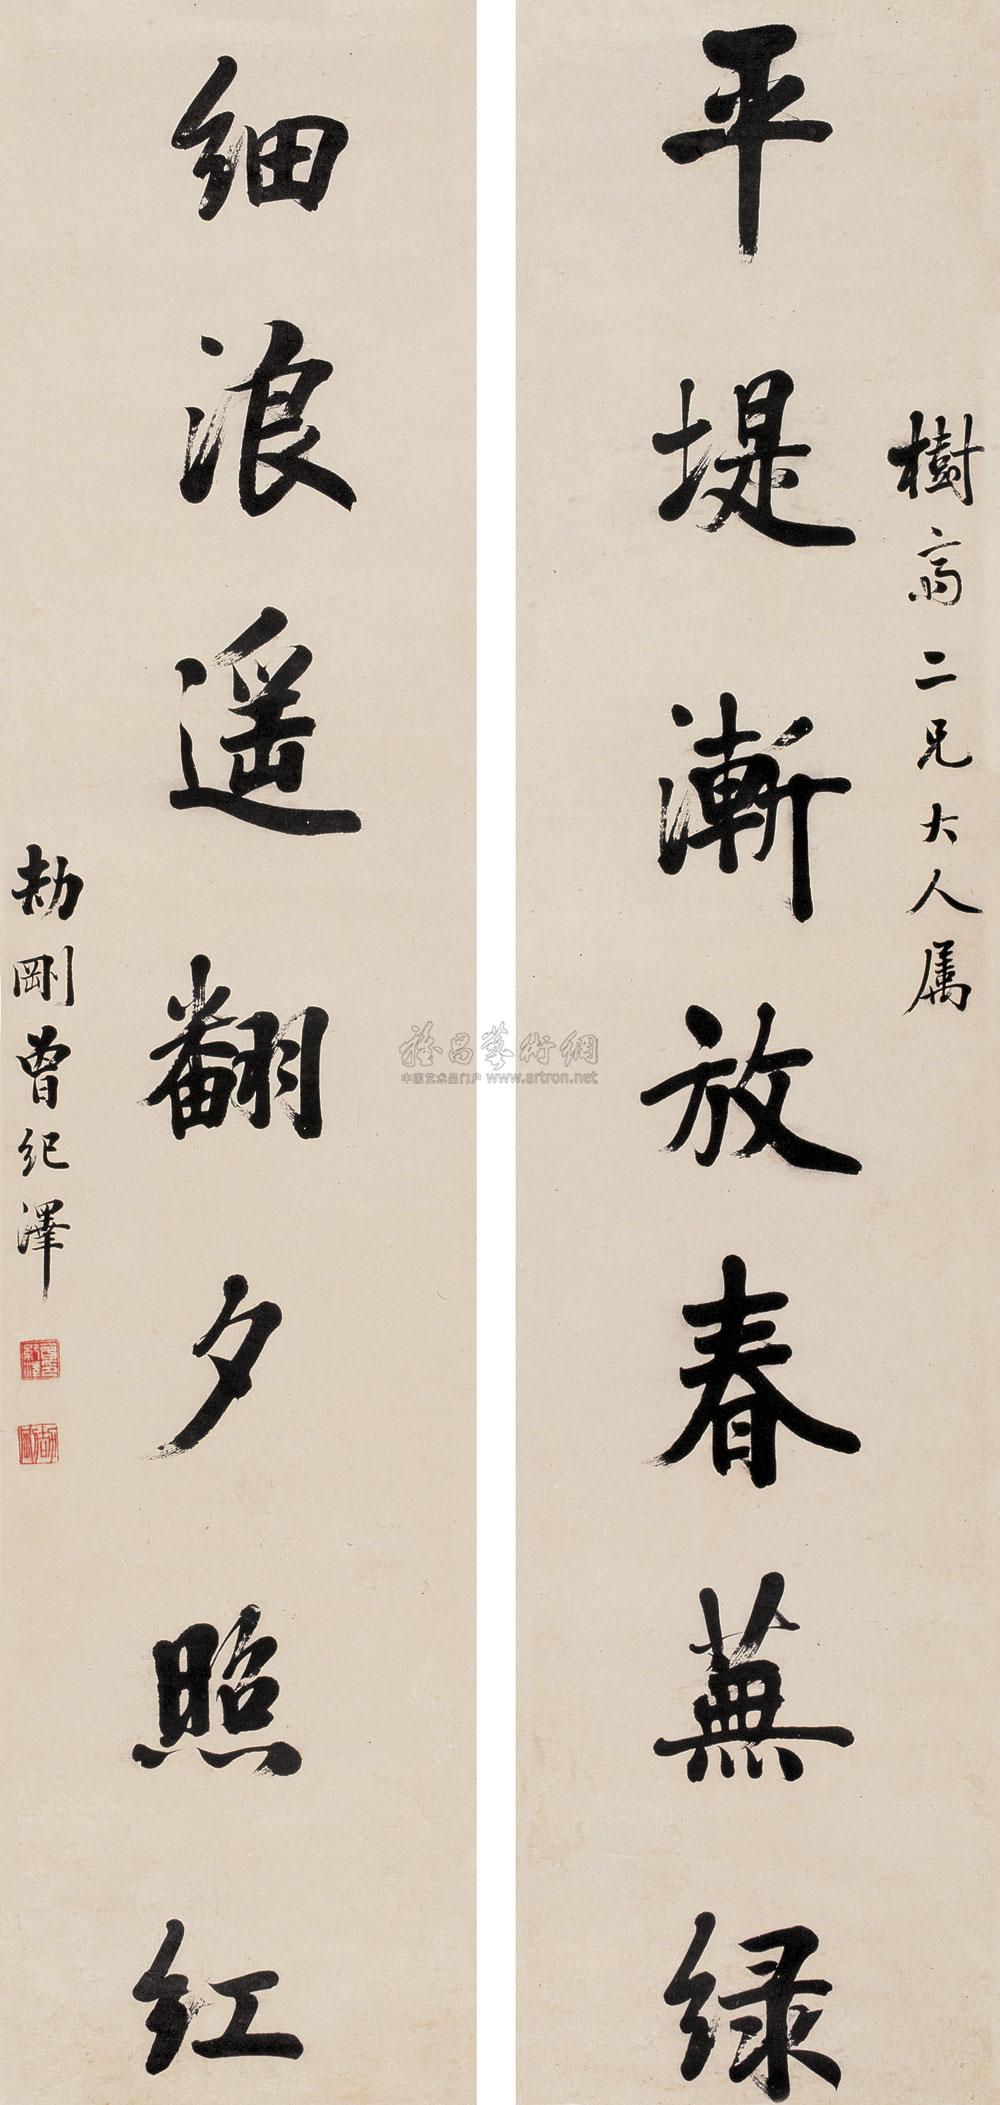 樹齋二兄大人属
平堤漸放春蕪緑
細浪遥翻夕照紅
劼剛曾紀澤
雅昌藝術網
中国艺术品门户 www.artron.net